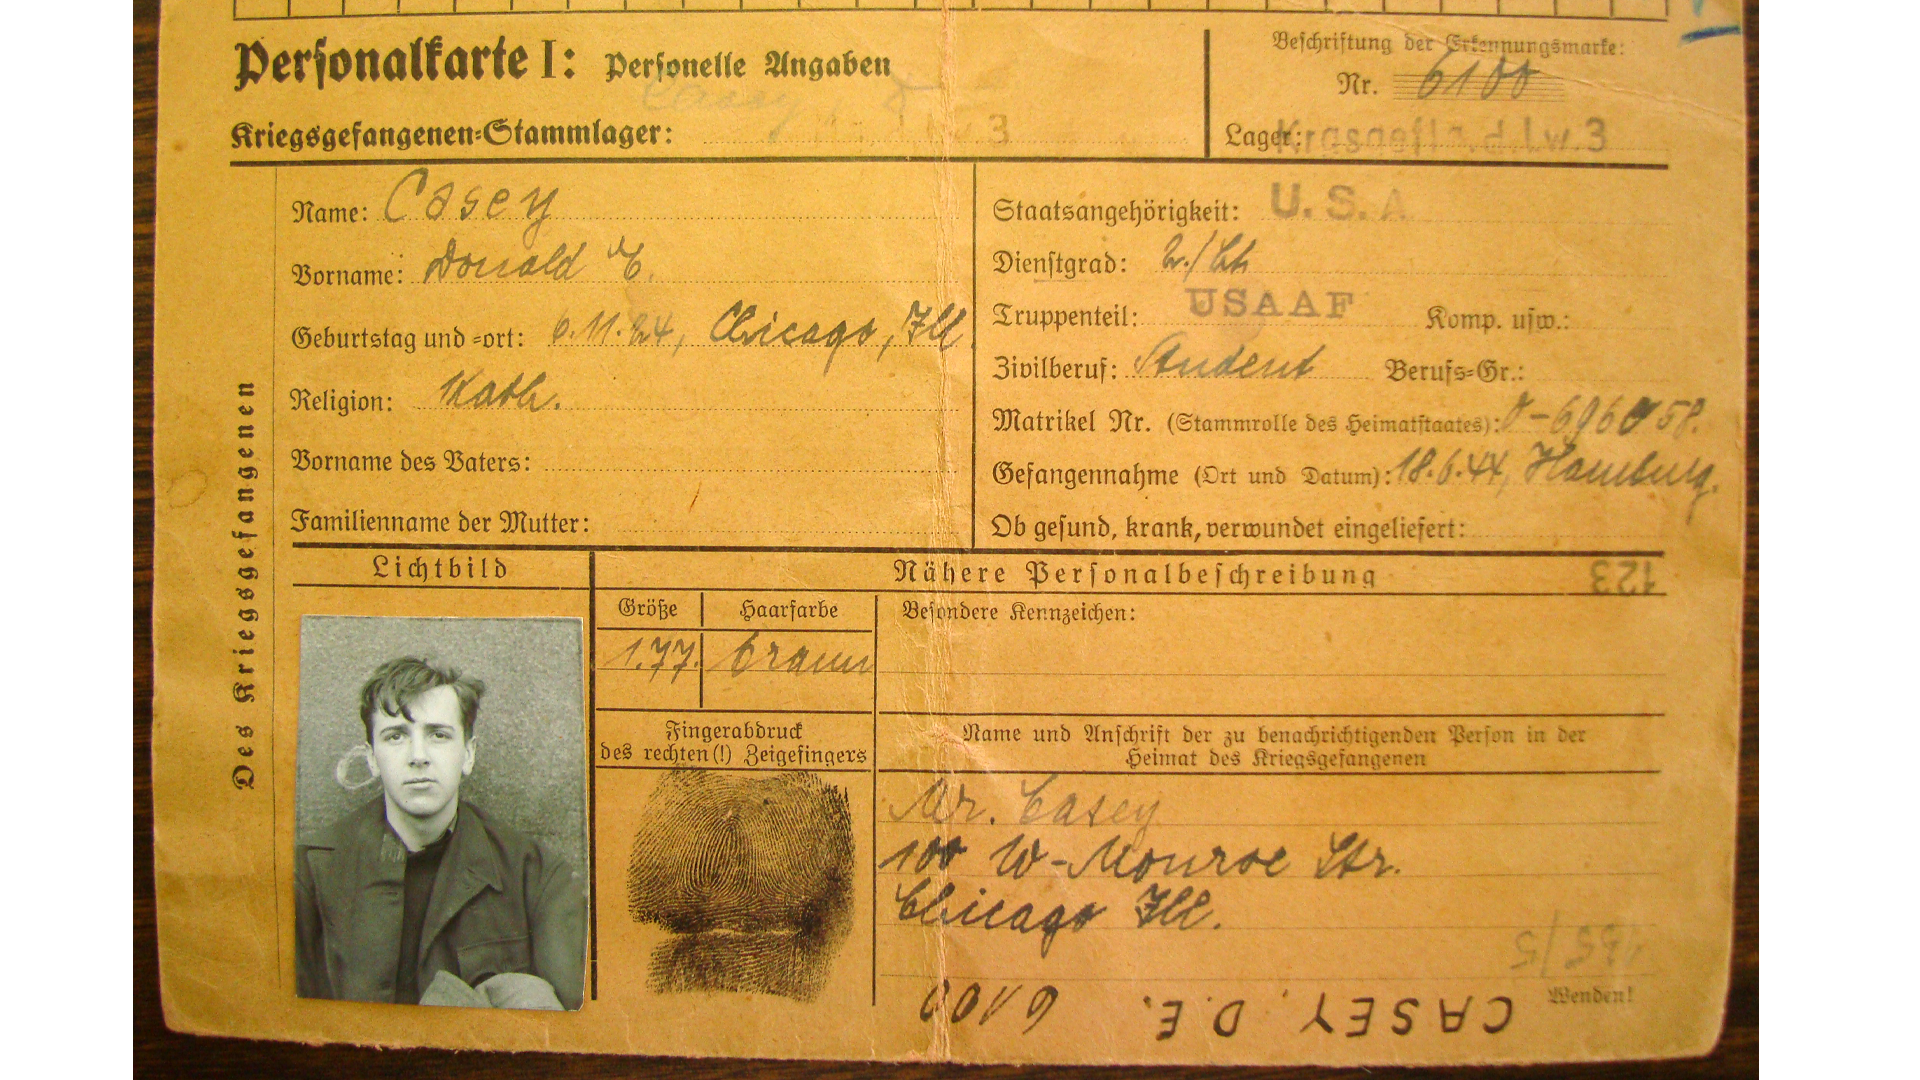 Personalkarte I: Personelle Angaben
Beschriftung der Erkennungsmarke:
Nr. 6100
Kriegsgefangenen-Stammlager:
Lager: Krgsgef. d. Lw. 3
Name: Casey
Vorname: Donald E.
Geburtstag und -ort: 6.11.24, Chicago, Ill
Religion: Kath.
Vorname des Vaters:
Familienname der Mutter:
Des Kriegsgefangenen
Staatsangehörigkeit: U.S.A
Dienstgrad: 2./Lt
Truppenteil: USAAF Komp. usw.:
Zivilberuf: Student Berufs-Gr.:
Matrikel Nr. (Stammrolle des Heimatstaates): 0-696058.
Gefangennahme (Ort und Datum): 18.6.44, Hamburg.
Ob gesund, krank, verwundet eingeliefert:
Lichtbild
Nähere Personalbeschreibung
123
Größe Haarfarbe
1.77. braun
Besondere Kennzeichen:
Fingerabdruck
des rechten(!) Zeigefingers
Name und Anschrift der zu benachrichtigenden Person in der
Heimat des Kriegsgefangenen
Mr. Casey
100 W-Monroe Str.
Chicago Ill.
Wenden!
CASEY, D.E. 6100